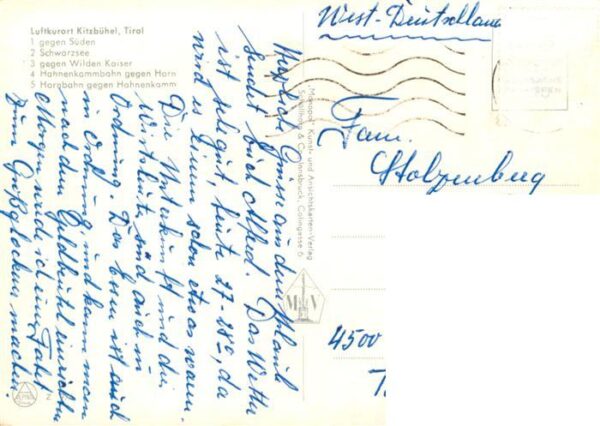 Luftkurort Kitzbühel, Tirol
1 gegen Süden
2 Schwarzsee
3 gegen Wilden Kaiser
4 Hahnenkammbahn gegen Horn
5 Hornbahn gegen Hahnenkamm
West-Deutschland
Herzliche Grüsse aus dem
sendet Euch Alfred. Das Wetter
ist sehr gut heute 27-28°, da
wird es einem schon etwas warm.
Die Unterkunft und die
Wirtsleute sind auch in
Ordnung. Das Essen ist auch
in Ordnung und kann man
nach dem Geldbeutel einrichten
Morgen mach ich eine Fahrt
zum Großglockner machen.
"Monopol" Kunst- und Ansichtskarten-Verlag
Schöllhorn & Co., Innsbruck, Colingasse 6
Fam.
Stolzenberg
4500
Z